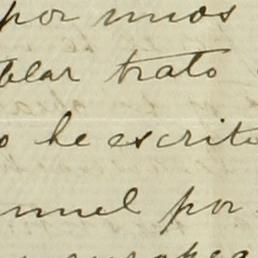 por unos
blar trato
o he escrito
nuel por